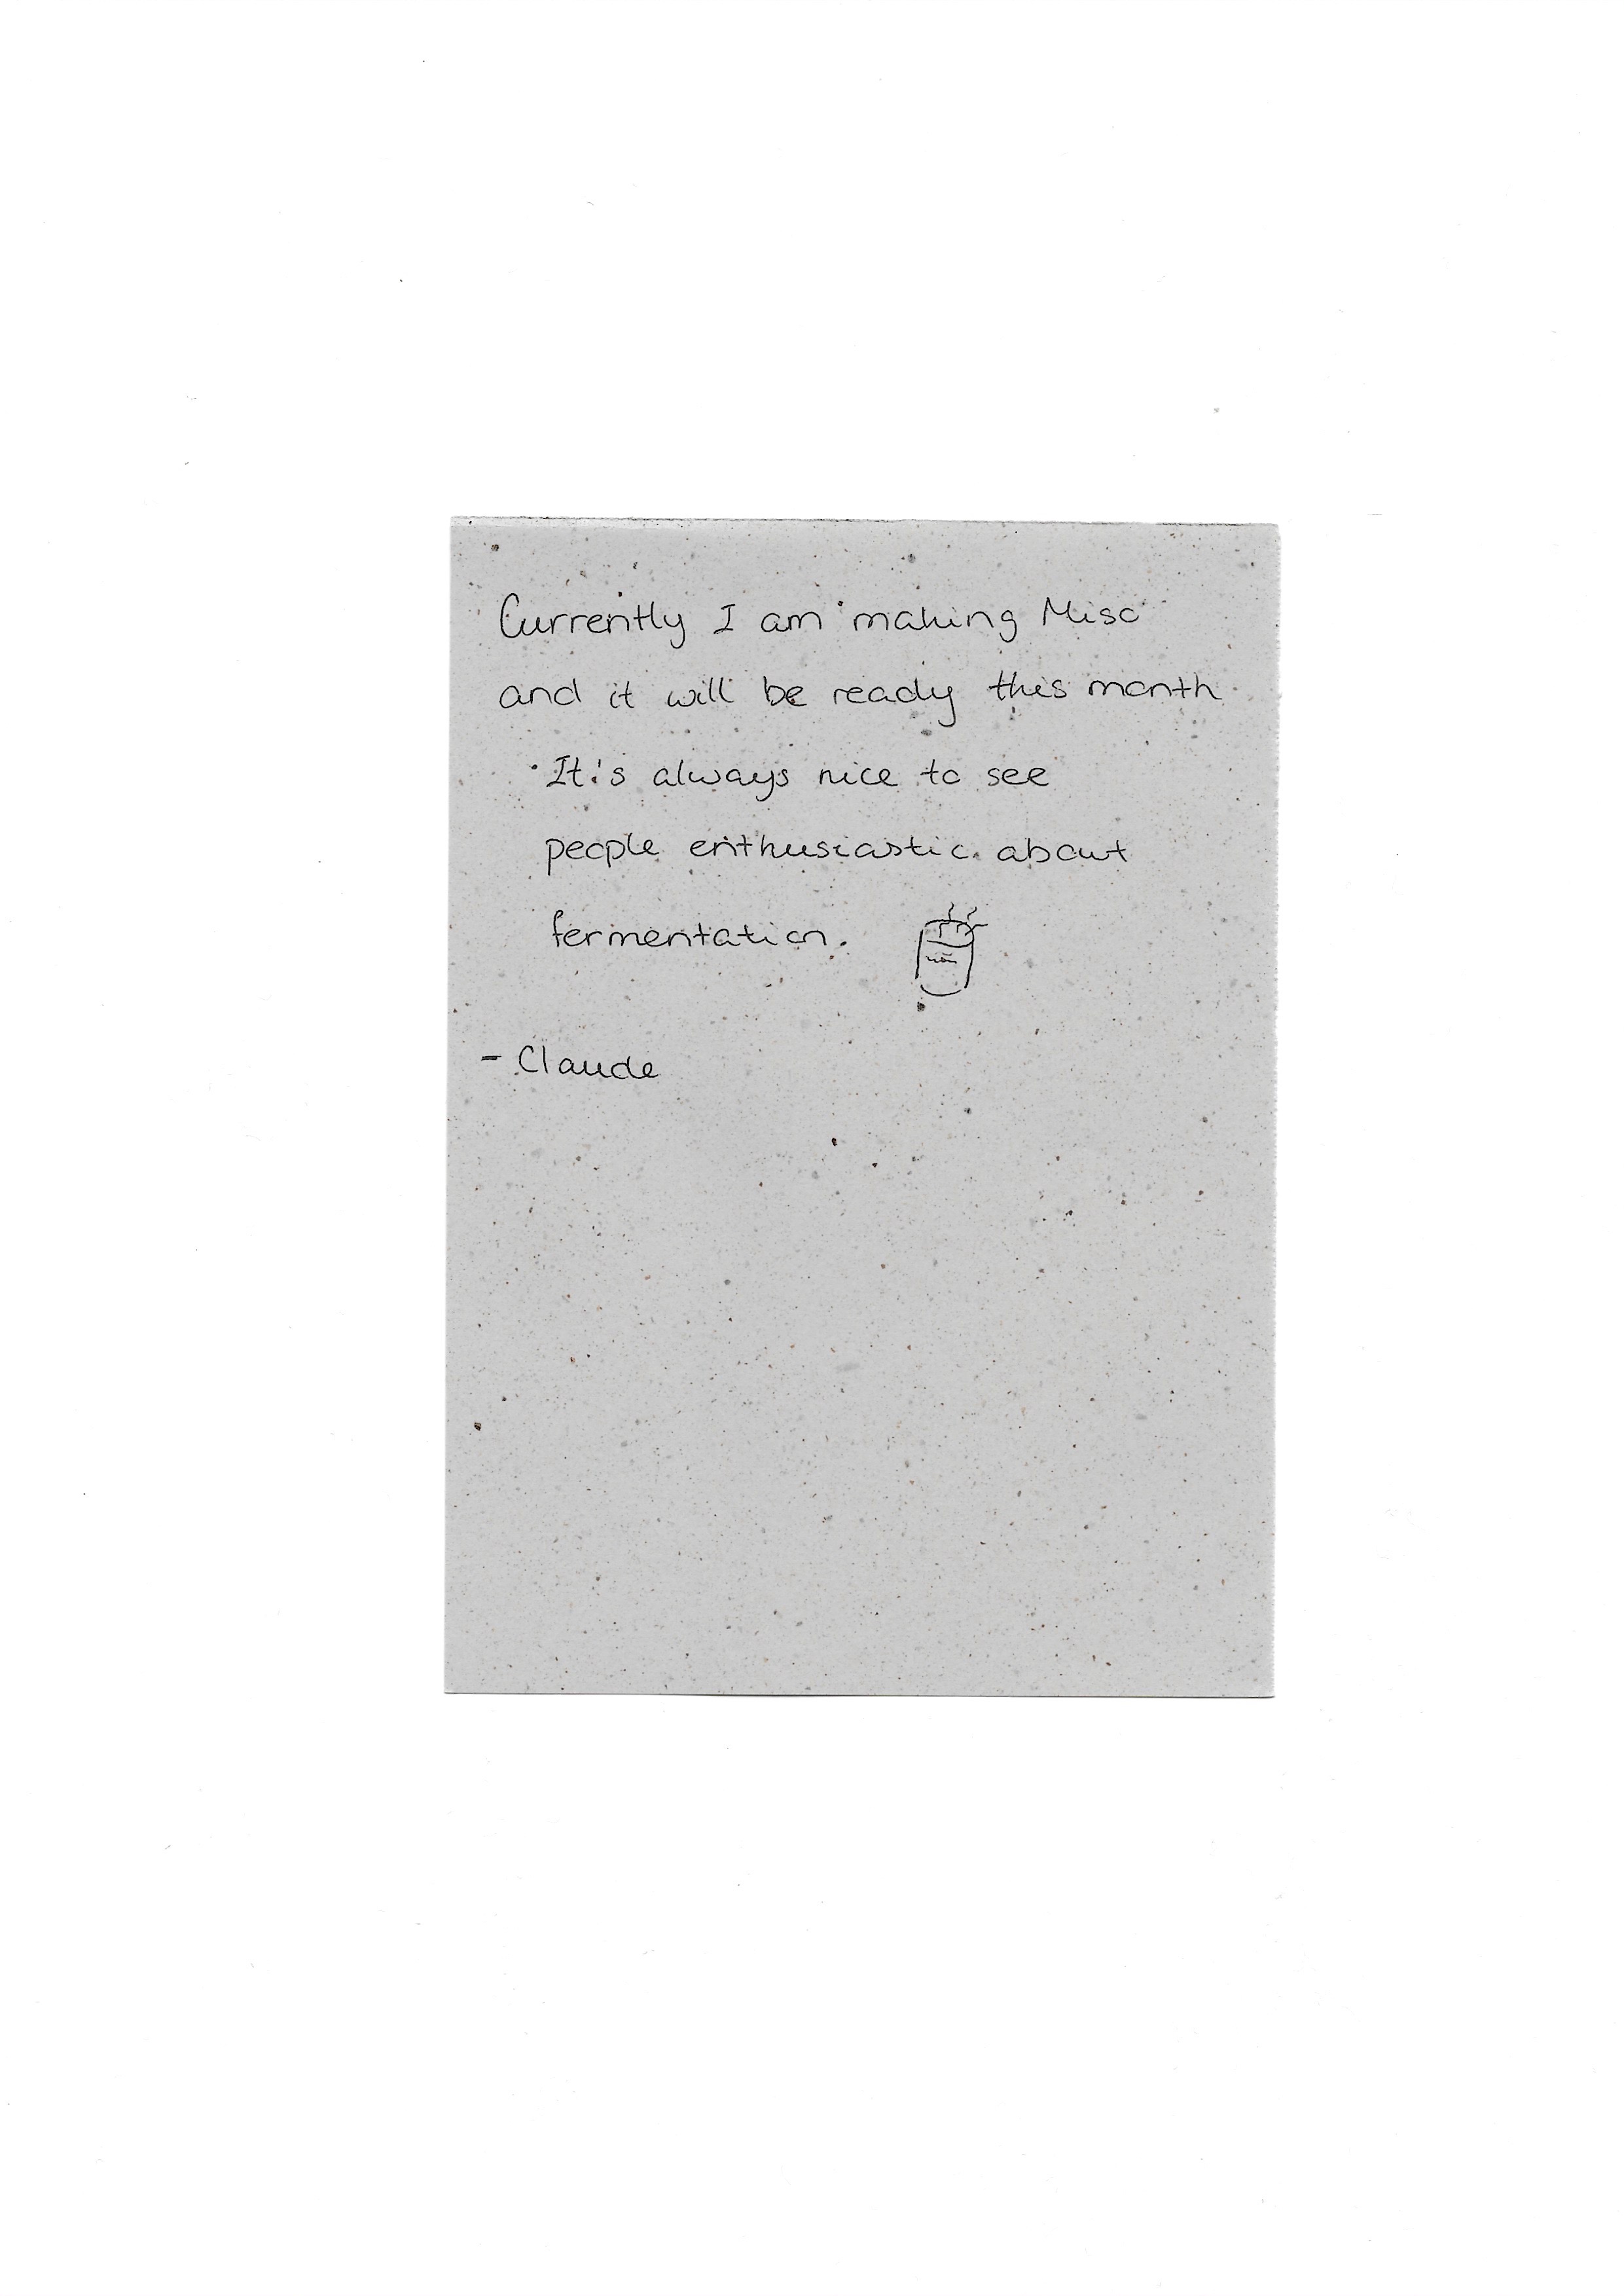 Currently I am making Miso
and it will be ready this month
It's always nice to see
people enthusiastic about
fermentation.
- Claude